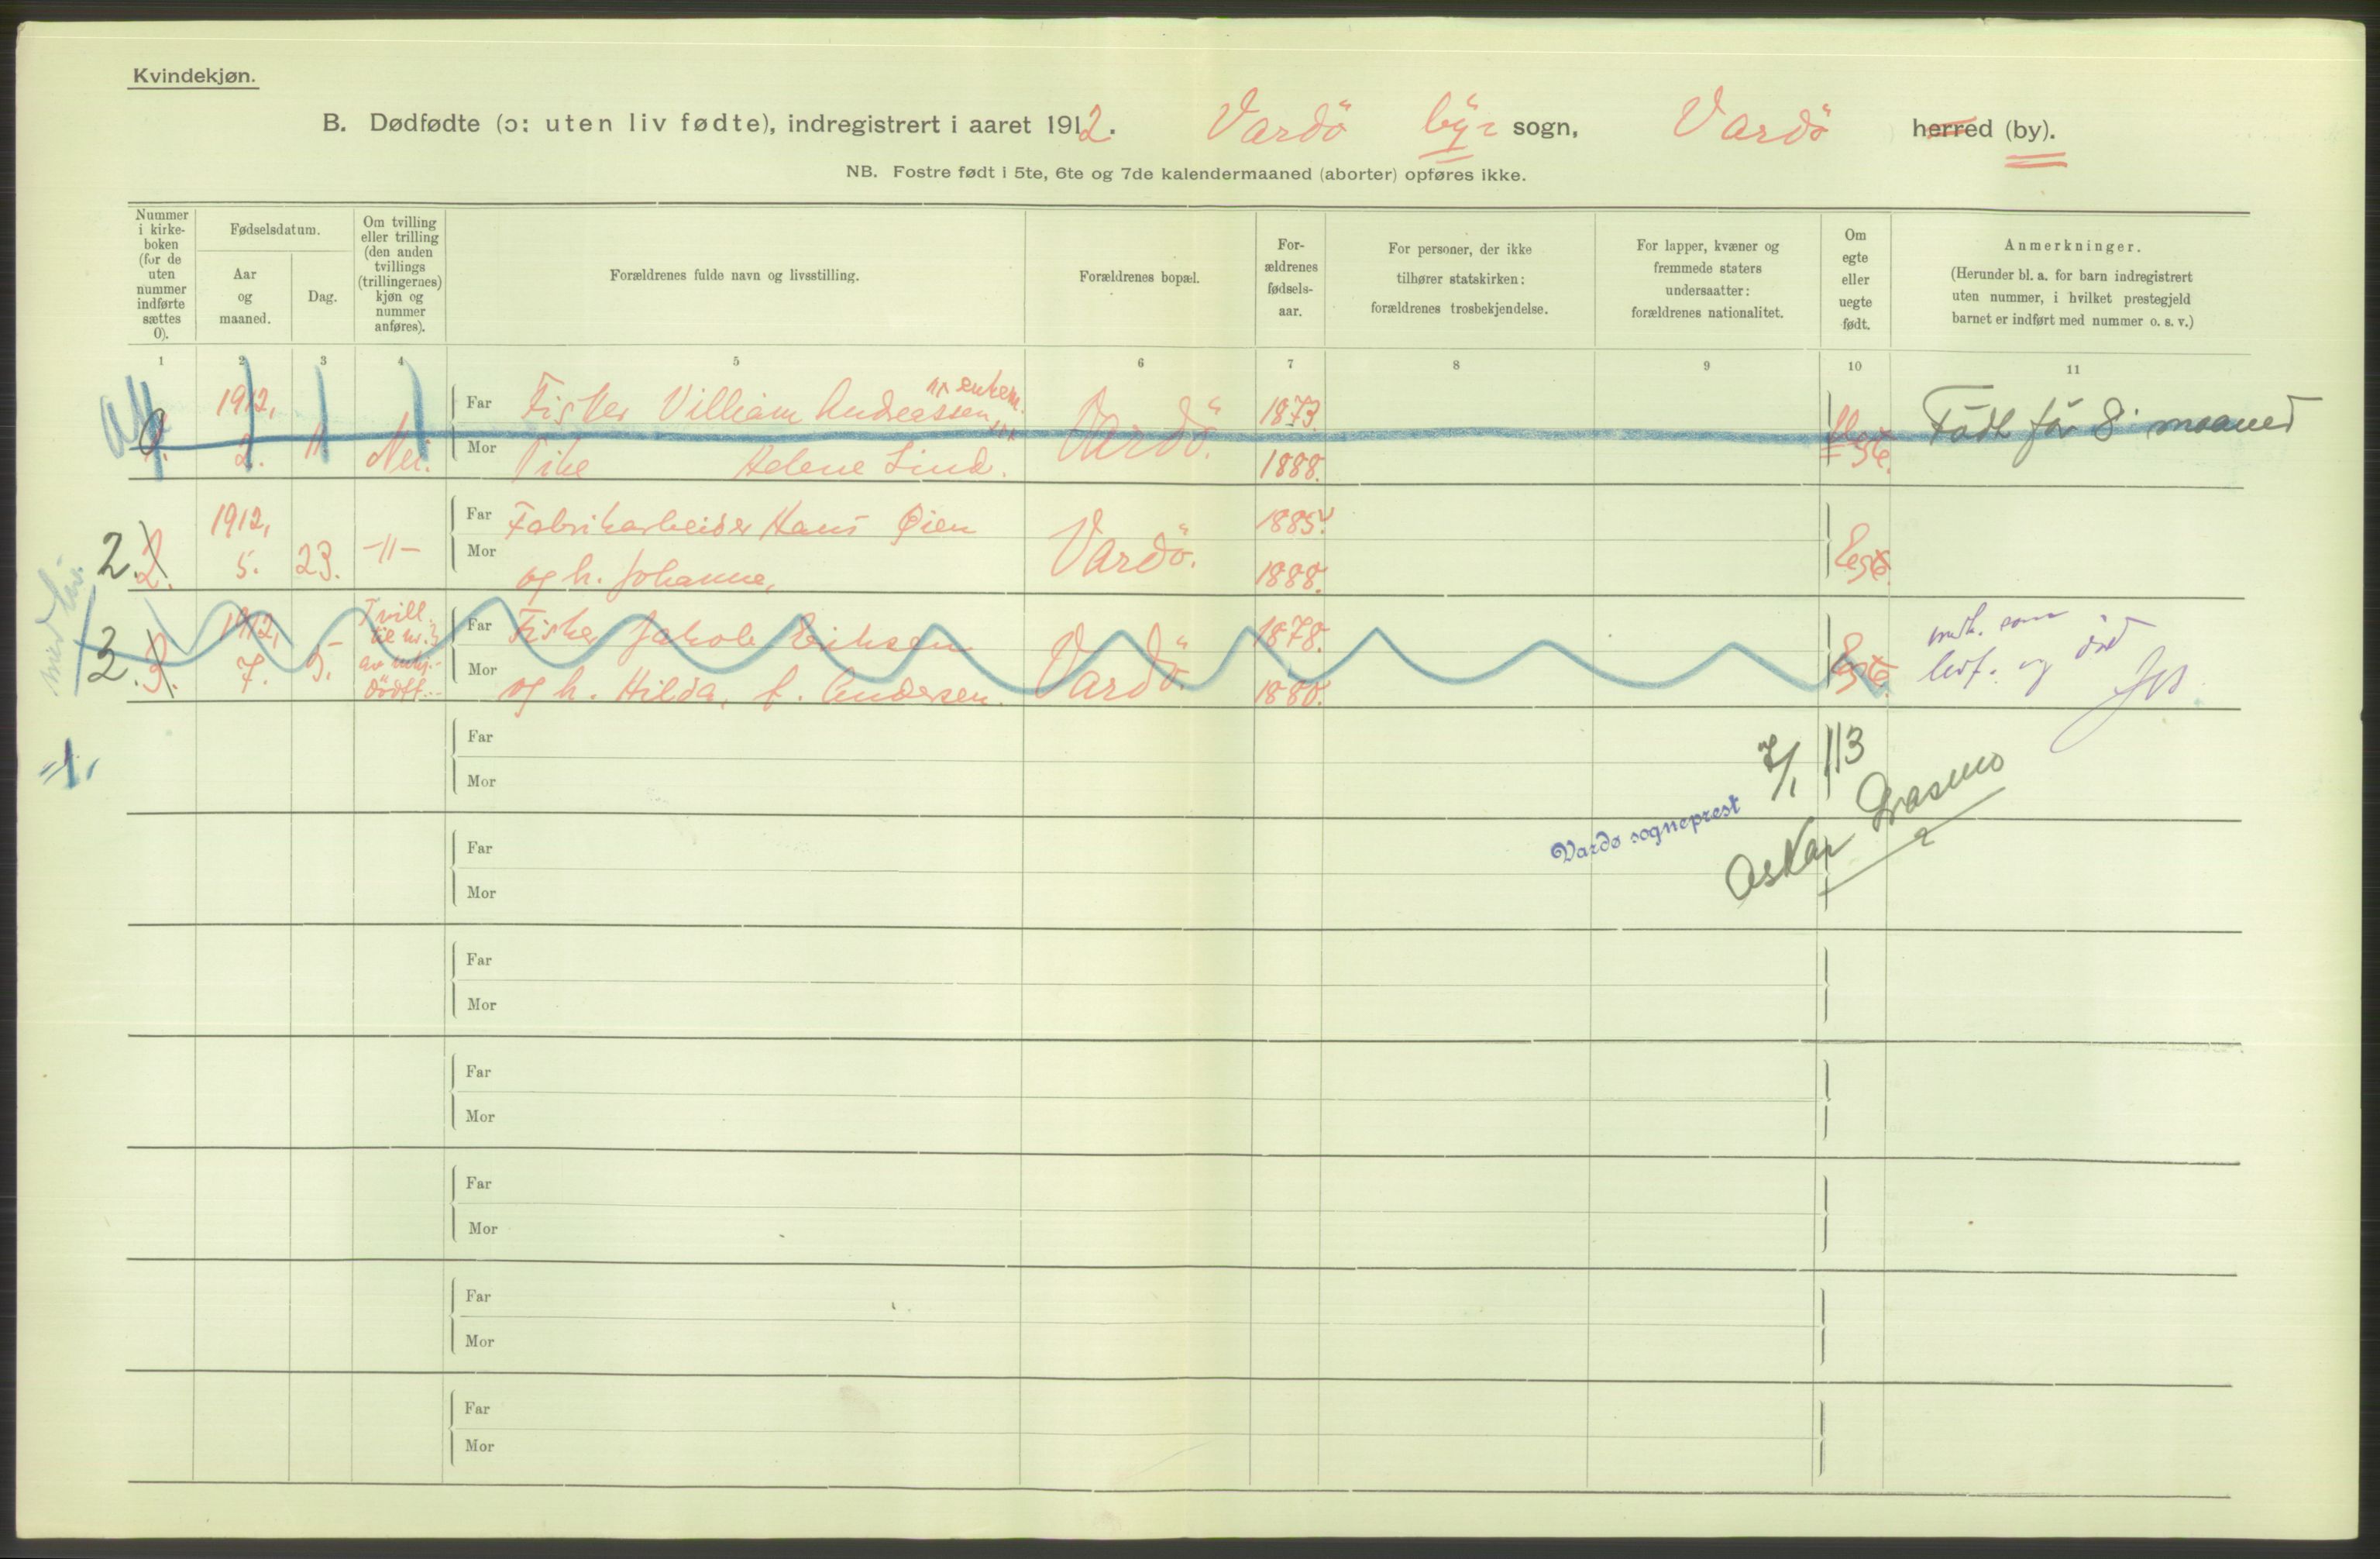 Kvindekjøn.
B. Dødfødte (ɔ: uten liv fødte), indregistrert i aaret 1912. Vardö by- sogn, Vardö herred (by).
NB. Fostre født i 5te, 6te og 7de kalendermaaned (aborter) opføres ikke.
Nummer
i kirke-
boken
(for de
uten
nummer
indførte
sættes
0).
Fødselsdatum.
Aar
og
maaned.
Dag.
Om tvilling
eller trilling
(den anden
tvillings
(trillingernes)
kjøn og
nummer
anføres).
Forældrenes fulde navn og livsstilling.
Forældrenes bopæl.
For-
ældrenes
fødsels-
aar.
For personer, der ikke
tilhører statskirken:
forældrenes trosbekjendelse.
For lapper, kvæner og
fremmede staters
undersaatter:
forældrenes nationalitet.
Om
egte
eller
uegte
født.
Anmerkninger.
(Herunder bl. a. for barn indregistrert
uten nummer, i hvilket prestegjeld
barnet er indført med nummer o. s. v.)
1 2 3 4 5 6 7 8 9 10 11
0. 1912, 2. 11 Nei.
Far Fisker Villiam Andreassen, enkem. 1873.
Mor Pike Helene Lind. Vardö. 1888.
Uegte. Födt før 8. maaned
2. 2. 1912, 5. 23. -11-
Far Fabrikarbeider Hans Øien 1885.
Mor og h. Johanne, Vardö. 1888.
Egte.
med liv.
3. 3. 1912, 7. 5.
Tvill.
til nr. 3
av mkj.
dödf.
Far Fisker Jakob Eriksen 1878.
Mor og h. Hilda, f. Andersen. Vardö. 1880.
Egte.
medt. som
levf. og död
=1.
Far
Mor
7/1 13
Vardø sogneprest
Oskar
Far
Mor
Far
Mor
Far
Mor
Far
Mor
Far
Mor
Far
Mor